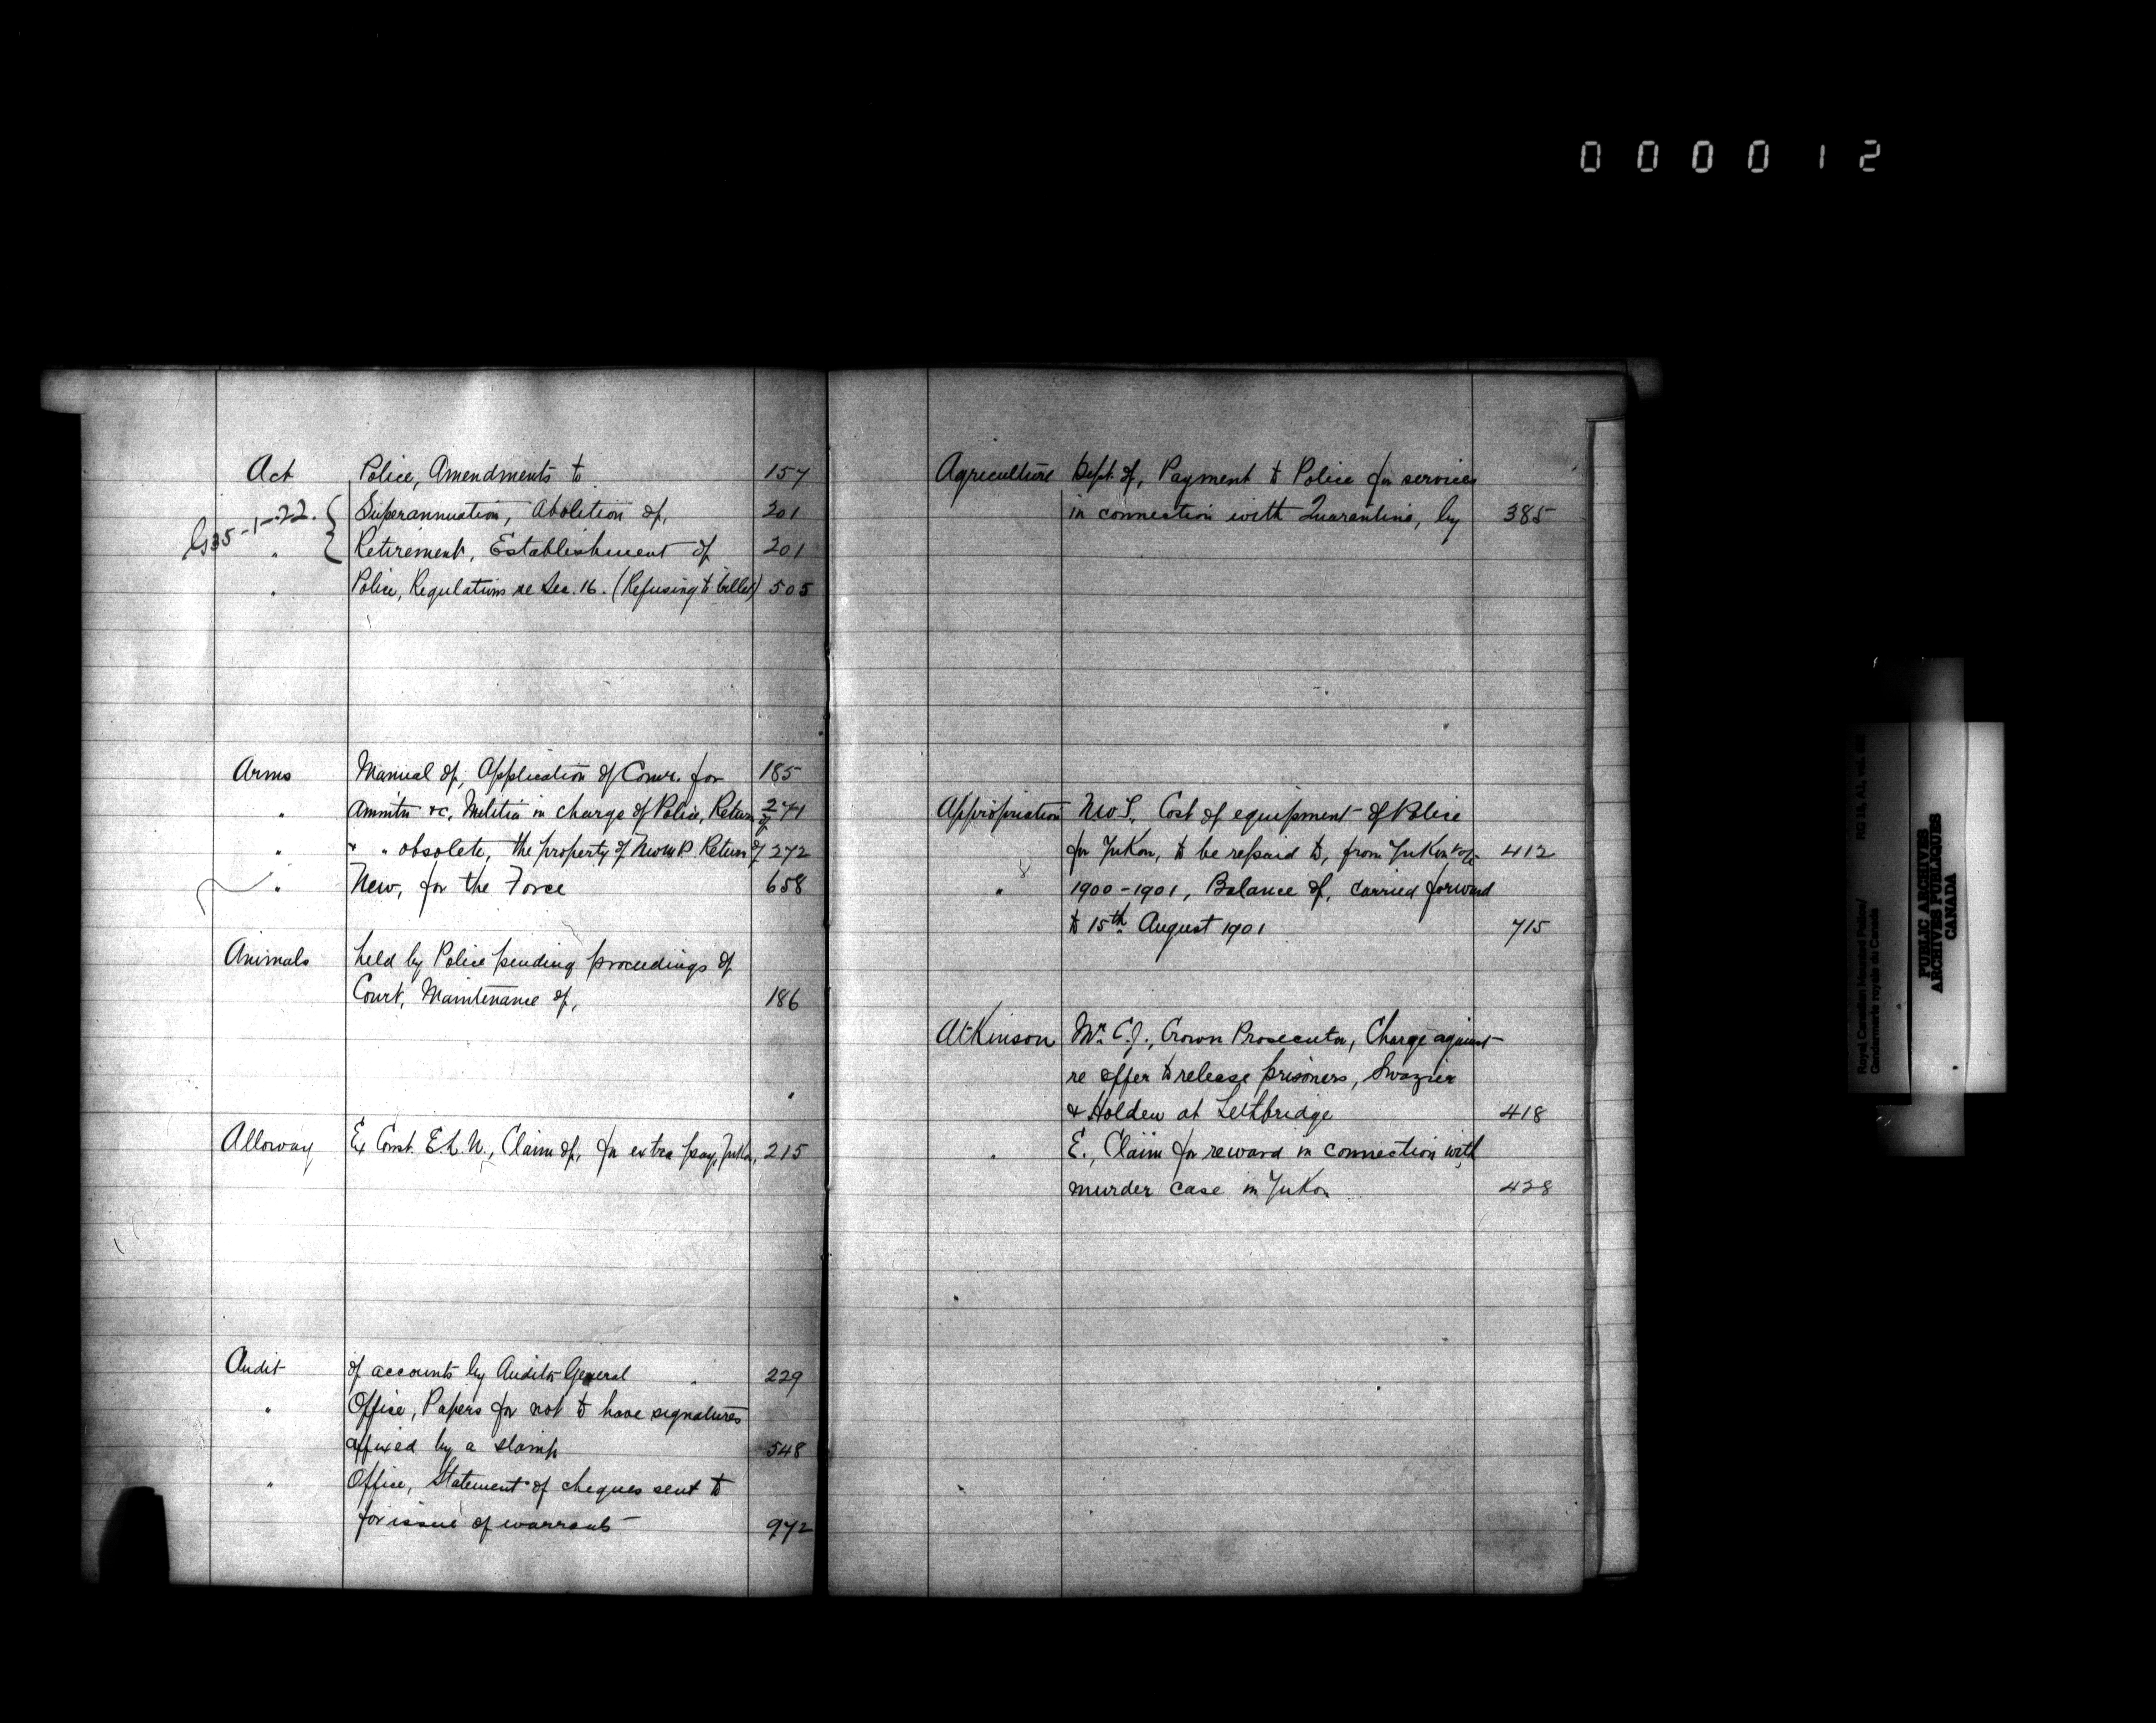 000012
Act Police, Amendments to 157
G 35-1-22. { Superannuation, Abolition of, 201
" { Retirement, Establishment of 201
" Police, Regulations re Sec. 16. (Refusing to billet) 505
Arms Manual of, Application of Comr. for 185
" Ammtn &c, Militia in charge of Police, Return of 271
" " " obsolete, the property of N.W.M.P. Return of 272
" New, for the Force 658
Animals held by Police pending proceedings of
Court, Maintenance of, 186
Alloway Ex Const. E.L.N., Claim of, for extra pay, Yukon, 215
Audit of accounts by Auditor General 229
" Office, Papers for not to have signatures
affixed by a stamp 548
" Office, Statement of cheques sent to
for issue of warrants 972
Agriculture Dept. of, Payment to Police for services
in connection with Quarantine, by 385
Appropriation N.W.T. Cost of equipment of Police
for Yukon, to be repaid to, from Yukon vote 412
" 1900-1901, Balance of, carried forward
to 15th August 1901 715
Atkinson Mr. C.J., Crown Prosecutor, Charge against
re offer to release prisoners, Swazier
& Holden at Lethbridge 418
" E., Claim for reward in connection with
murder case in Yukon 428
Royal Canadian Mounted Police/
Gendarmerie royale du Canada
RG 18, A1, vol.
PUBLIC ARCHIVES
ARCHIVES PUBLIQUES
CANADA